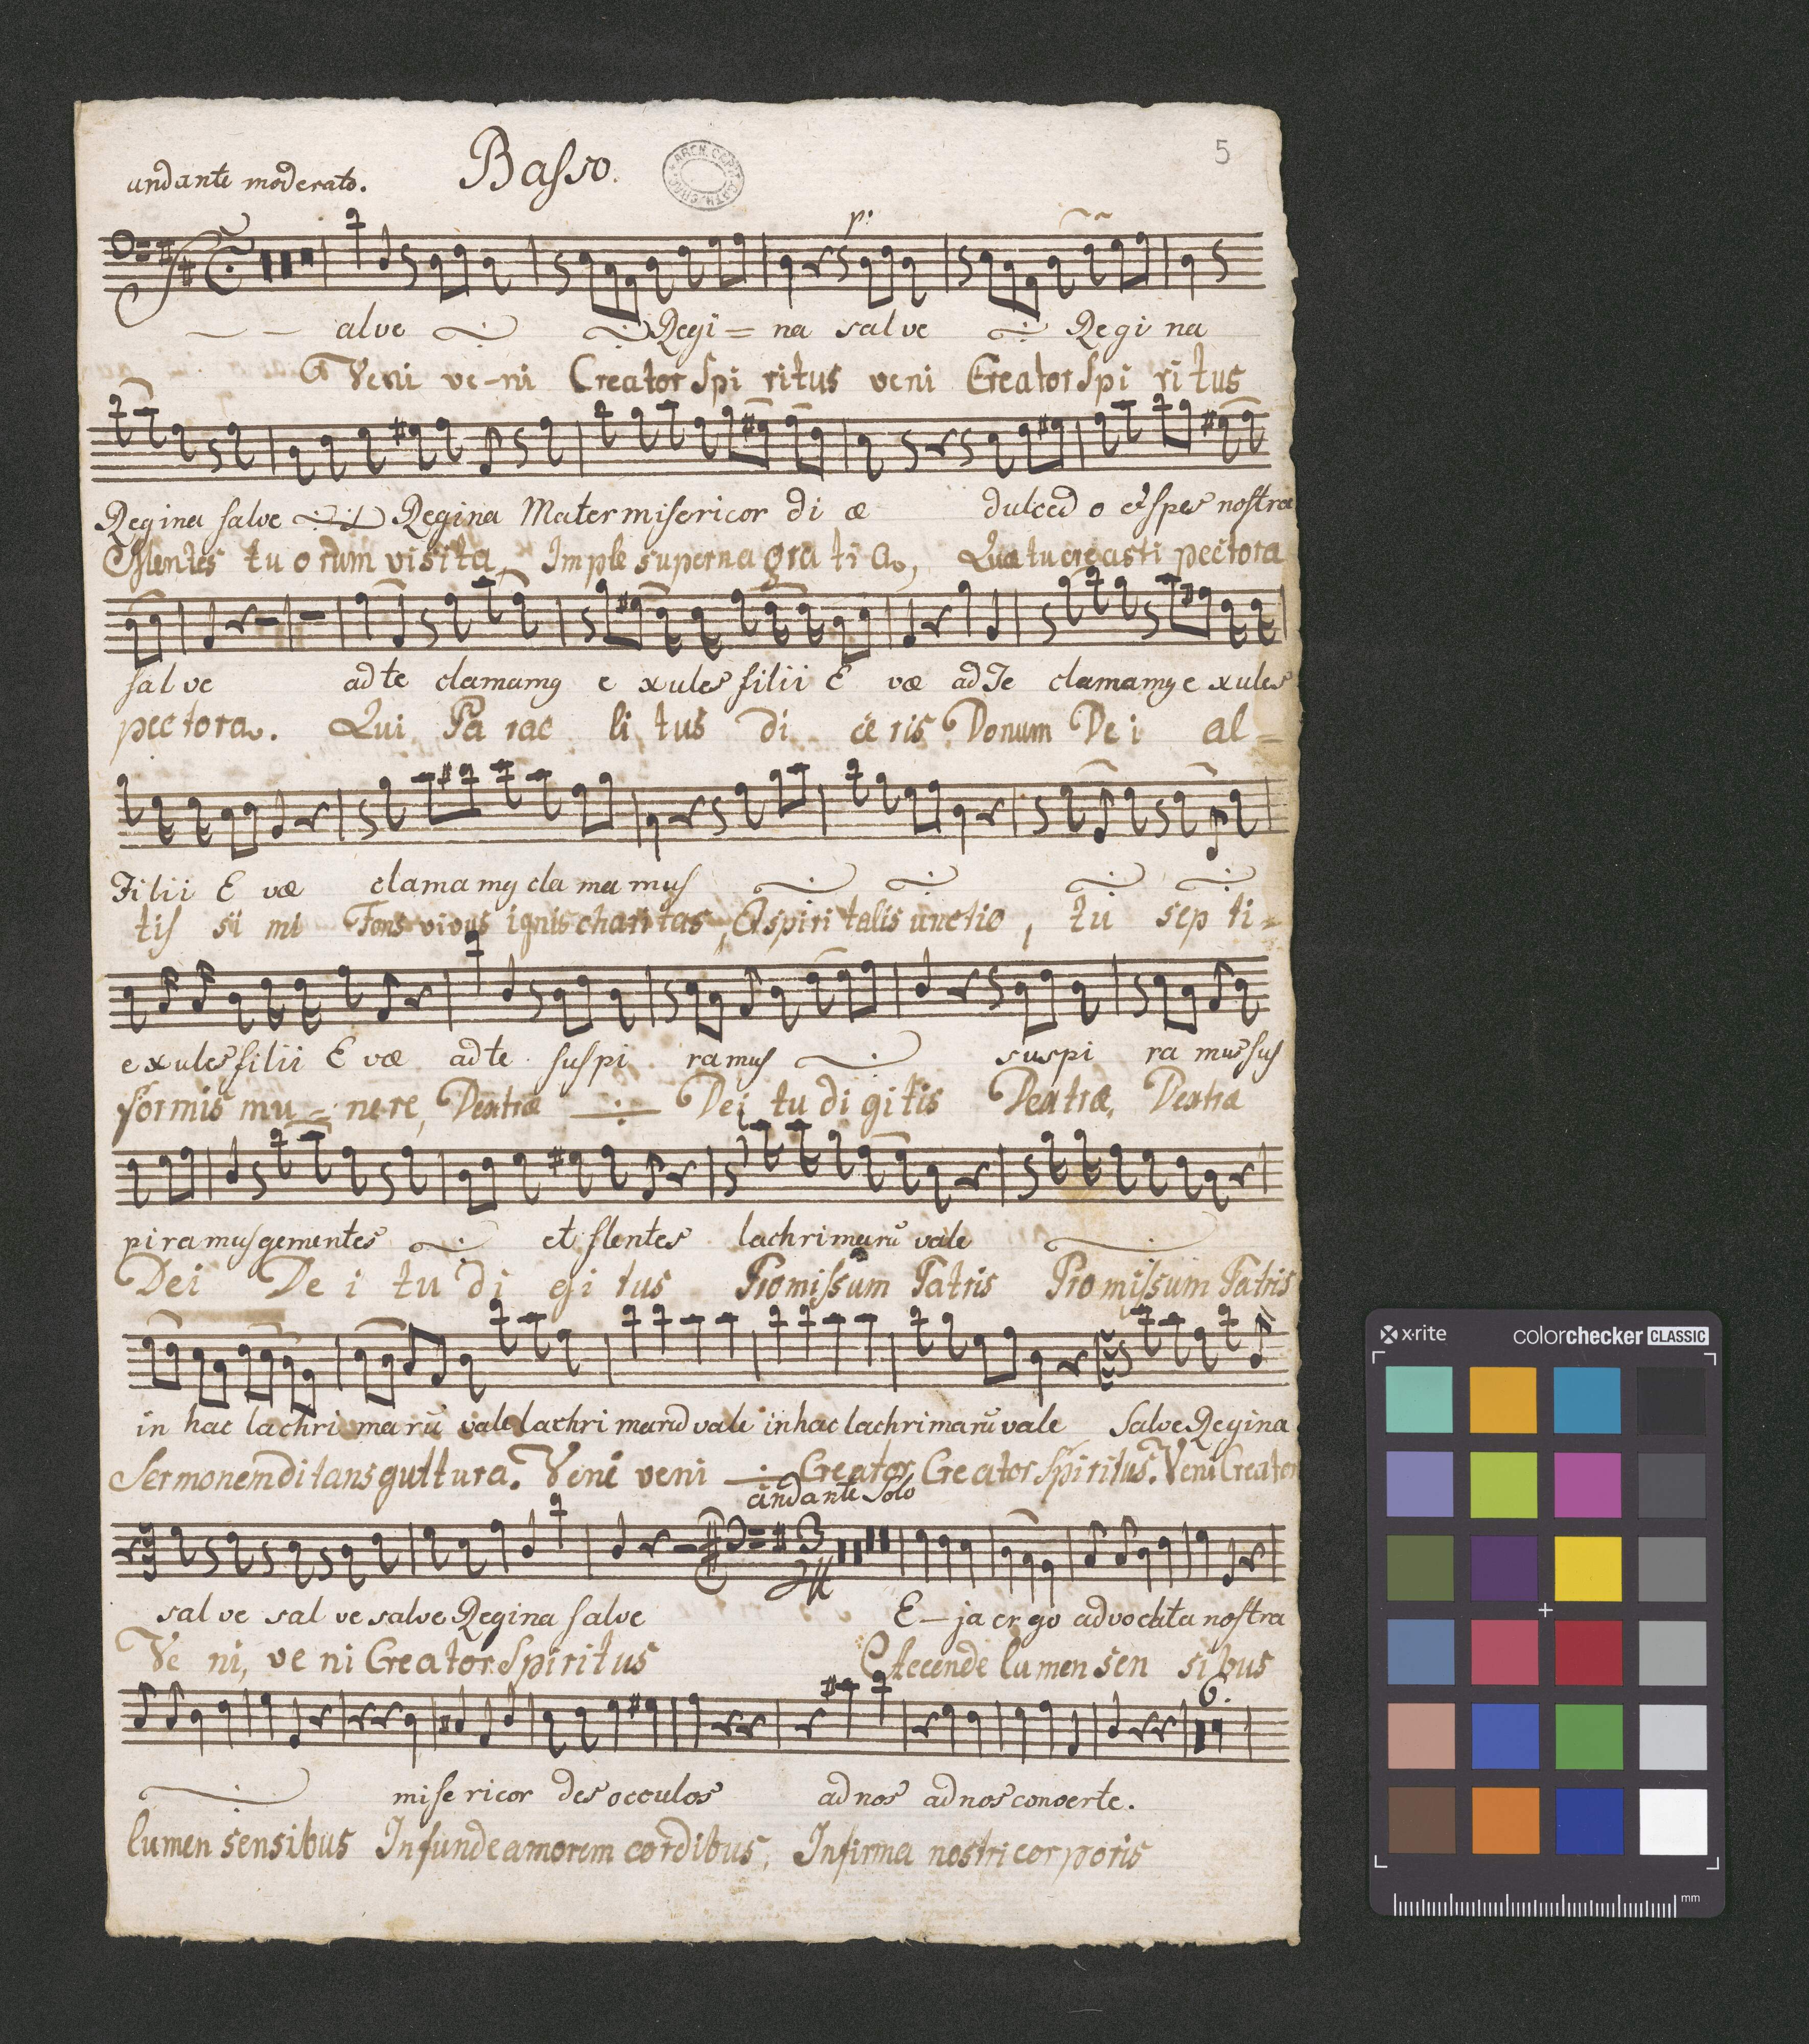 5
andante moderato. Basso.
p:
alve Regi = na salve Regi na
Veni ve-ni Creator Spi ritus veni Creator Spi ritus
Regina salve Regina Mater misericor di æ dulced o et spes nostra
Mentes tu o rum visita, Imple superna gra ti a, Quæ tu creasti pectora
sal ve ad te clamamq e xules filii E væ ad Te clamamq e xules
pectora. Qui Pa rac li tus di ce ris Donum De i al =
Filii E væ clama mq cla ma mus
tis si mi Fons vivus ignis charitas, Et spiri talis unctio, tu sep ti =
e xules filii E væ ad te suspi ramus suspi ra mus sus
formis mu = nere, Dextræ Dei tu di gi tis Dextræ, Dextra
pi ramus gementes et flentes lachrimarū vale
Dei De i tu di gi tus Promissum Patris Promissum Patris
in hac lachri ma rū vale lachri marū vale in hac lachrimarū vale Salve Regina
Sermone ditans guttura. Veni veni Creator Creator Spiritus. Veni Creator
andante Solo
sal ve sal ve salve Regina salve E - ja ergo advocata nostra
Ve ni, ve ni Creator Spiritus Accende lumen sen sibus
6.
mise ricor des occulos ad nos ad nos converte.
lumen sensibus Infunde amorem cordibus, Infirma nostri corporis
x·rite colorchecker CLASSIC
mm